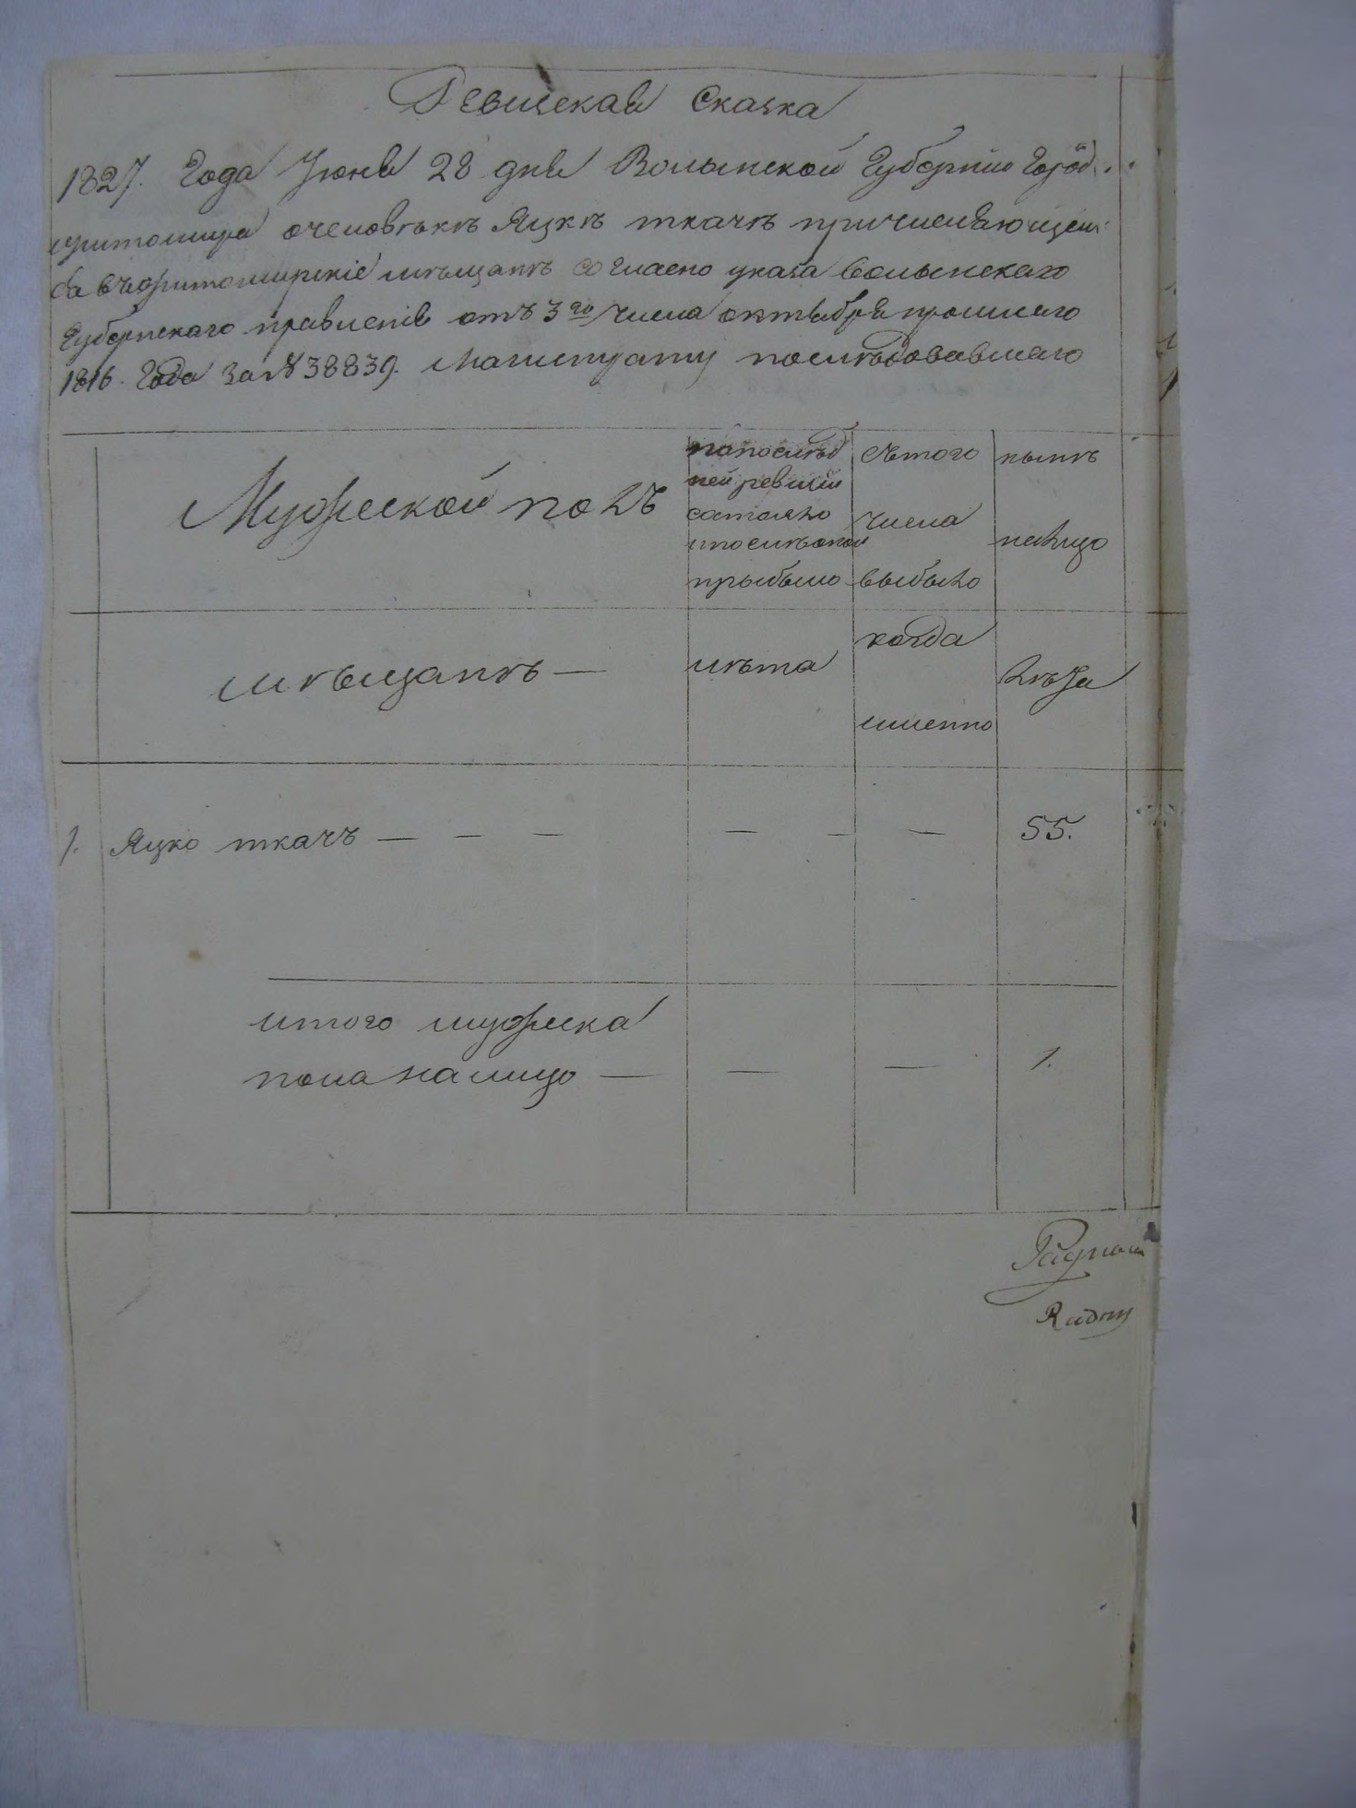 Ревизская Сказка
1827. Года Июня 28 дня Волынской Губернии Город:
житомира очеловѣкѣ Яцкѣ ткачѣ причисляющем
ся въ житомирскіе мѣщанѣ согласно указа волынскаго
Губернскаго правленія отъ 3го числа октября прошлаго
1816. Года за № 38839. Магистрату послѣдовавшаго
Мужеской полъ
напослѣд
ней ревизіи
состояло
ипослѣоной
прибыло
сѣтого
числа
выбыло
нынѣ
налицо
мѣщанѣ —
лѣта
когда
именно
лѣта
1. Яцко ткачъ — — — — - — 55.
итого мужеска
пола налицо — — — 1.